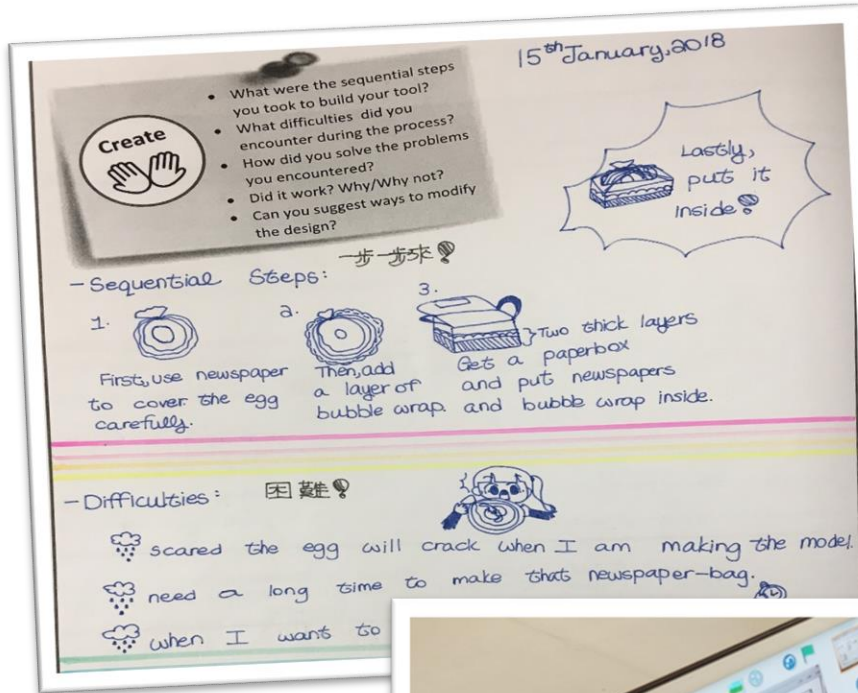 15th January, 2018
Create
• What were the sequential steps
you took to build your tool?
• What difficulties did you
encounter during the process?
• How did you solve the problems
you encountered?
• Did it work? Why/Why not?
• Can you suggest ways to modify
the design?
Lastly,
put it
inside!
一步一步來!
- Sequential Steps:
1.
First, use newspaper
to cover the egg
carefully.
2.
Then, add
a layer of
bubble wrap.
3.
Two thick layers
Get a paperbox
and put newspapers
and bubble wrap inside.
- Difficulties: 困難!
scared the egg will crack when I am making the model.
need a long time to make that newspaper-bag.
when I want to